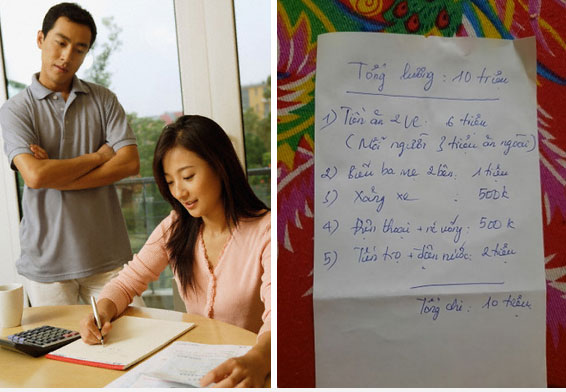 Tổng lương : 10 triệu
1) Tiền ăn 2 VC : 6 triệu
( Mỗi người 3 triệu ăn ngoài )
2) Biếu ba mẹ 2 bên : 1 triệu
3) Xăng xe : 500k
4) Điện thoại + rẻ vống : 500k
5) Tiền trọ + điện nước : 2 triệu
Tổng chi : 10 triệu